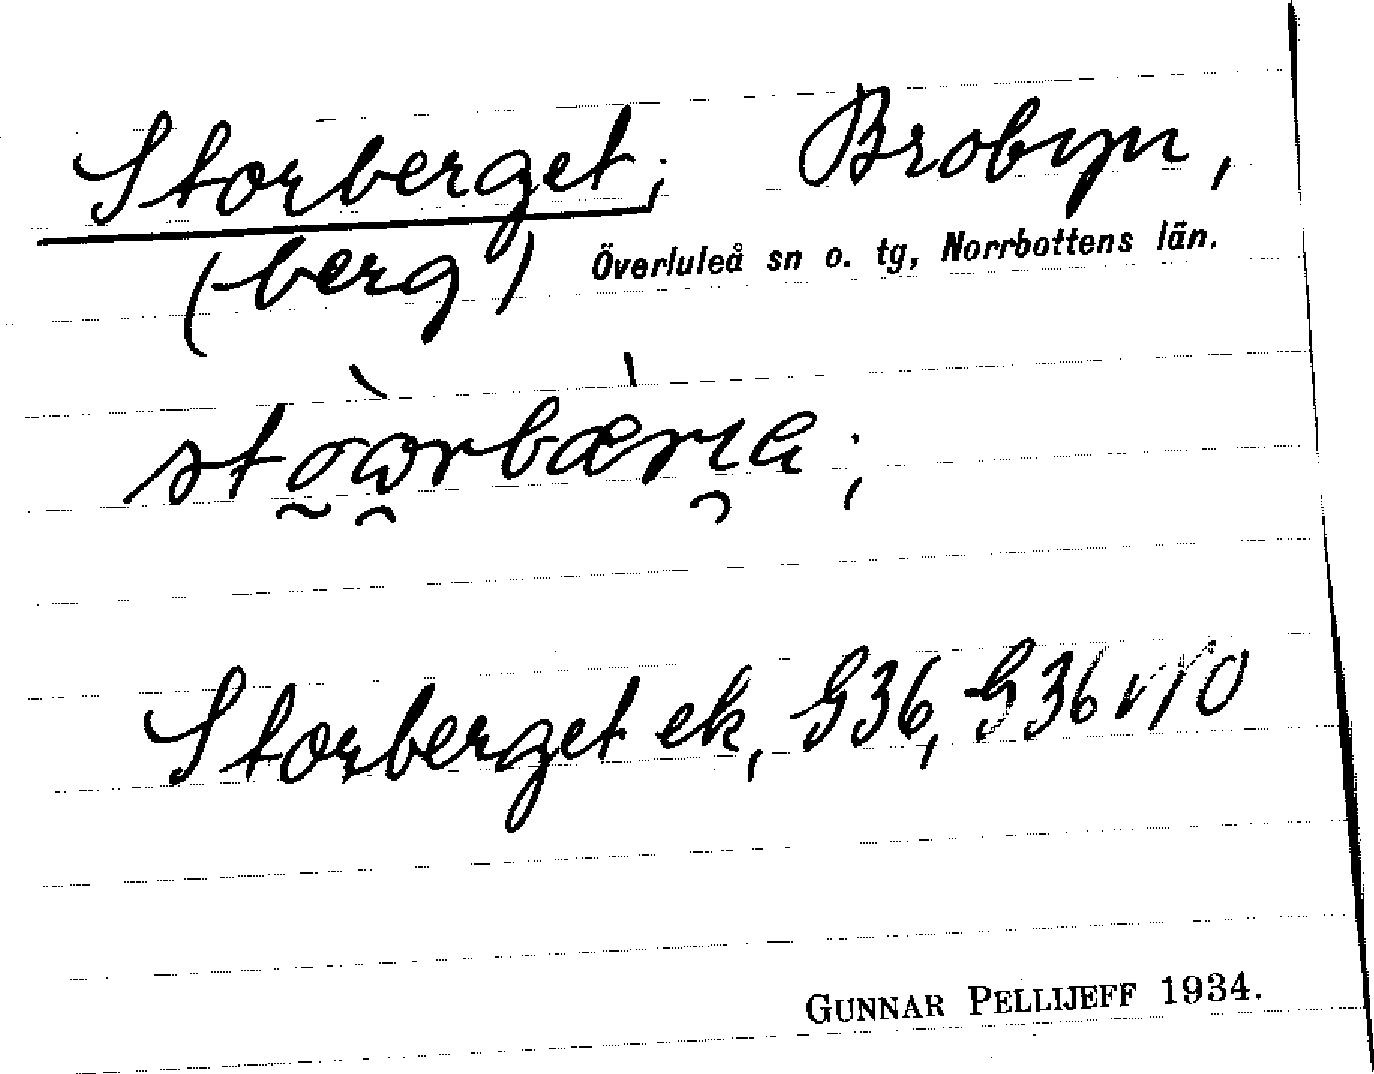 Storberget; Brobyn,
(berg) Överluleå sn o. tg, Norrbottens län.
Storberget ek, G36, G36 v NO
GUNNAR PELLIJEFF 1934.